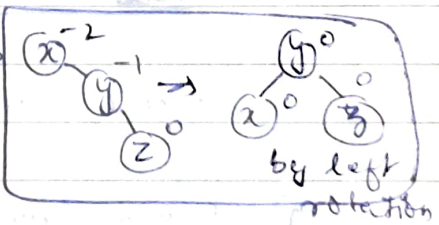 x -2
y -1 → y 0
z 0
x 0 z 0
by left
rotation